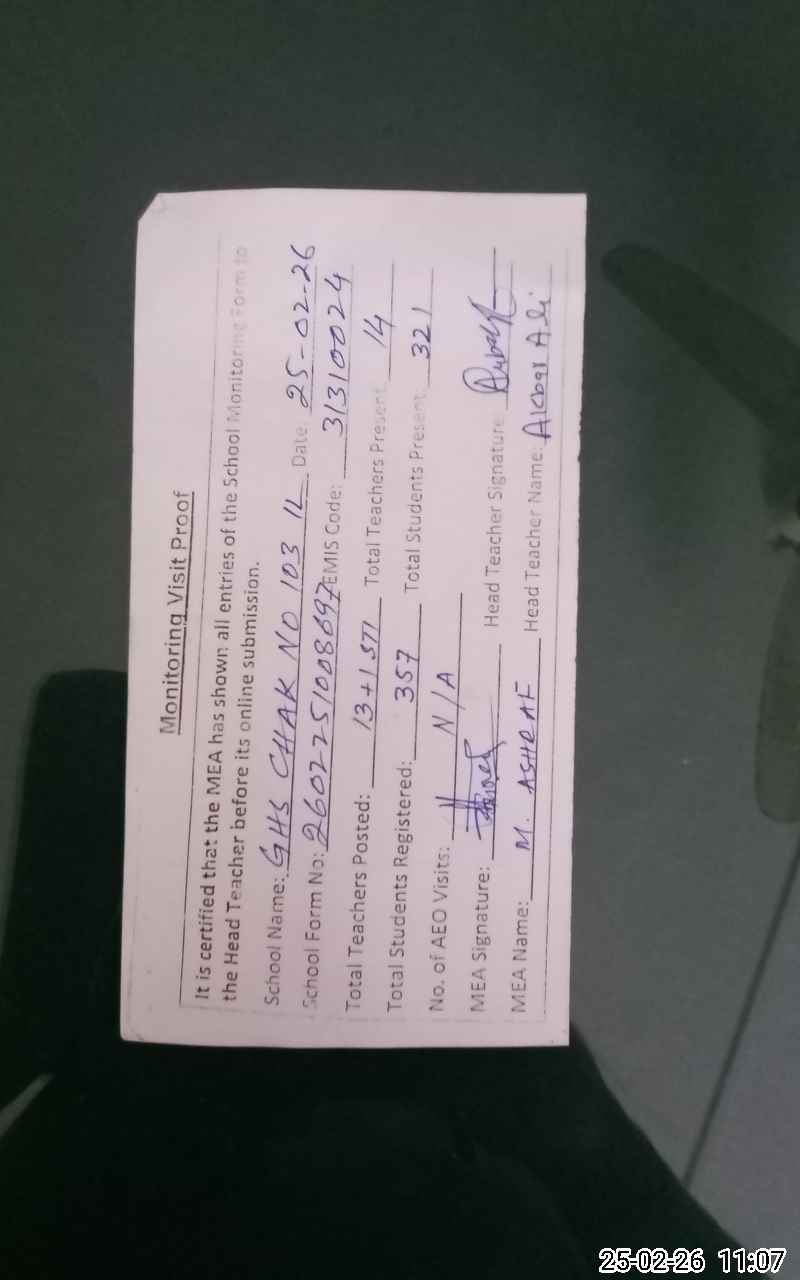 Monitoring Visit Proof
It is certified that the MEA has shown all entries of the School Monitoring Form to
the Head Teacher before its online submission.
School Name: GHS CHAK NO 103 1L Date: 25-02-26
School Form No: 26022251008697 EMIS Code: 31310024
Total Teachers Posted: 13+1 STI Total Teachers Present: 14
Total Students Registered: 357 Total Students Present: 321
No. of AEO Visits: N/A
MEA Signature: Head Teacher Signature:
MEA Name: M. ASHRAF Head Teacher Name: Akbar Ali
25-02-26 11:07